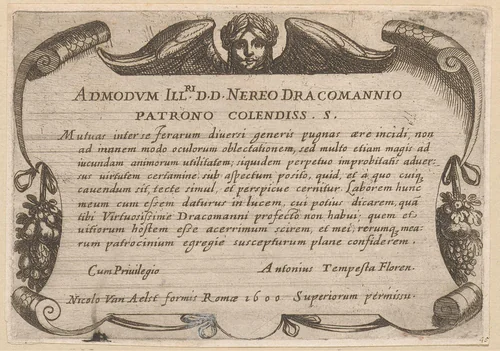 ADMODVM ILL.RI D.D. NEREO DRACOMANNIO
PATRONO COLENDISS. S.
Mutuas inter se ferarum diversi generis pugnas ære incidi, non
ad inanem modo oculorum oblectationem, sed multo etiam magis ad
iucundam animorum utilitatem; siquidem perpetuo improbitatis adver:
sus virtutem certamine sub aspectum posito, quid, et a quo cuiq,
cavendum sit, tecte simul, et perspicue cernitur. Laborem hunc
meum cum essem daturus in lucem, cui potius dicarem, quã
tibi Virtuosissime Dracomanni profecto non habui; quem et
vitiorum hostem esse acerrimum scirem, et mei; rerumq, mea:
rum patrocinium egregie suscepturum plane confiderem.
Cum Privilegio Antonius Tempesta Floren.
Nicolo Van Aelst formis Romæ 1600 Superiorum permissu.